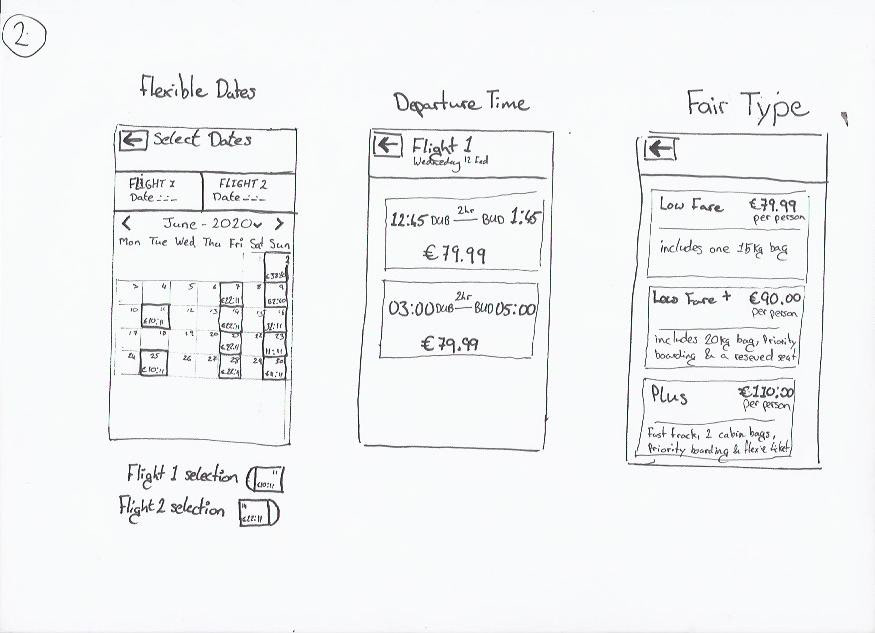 2
Flexible Dates
← Select Dates
FLIGHT 1
Date ---
FLIGHT 2
Date ---
< June - 2020 >
Mon Tue Wed Thu Fri Sat Sun
2
3 4 5 6 7 8 9
€22:11
10 11 12 13 14 15 16
€10:11 €22:11
17 18 19 20 21 22 23
€22:11 11:11
24 25 26 27 28 29 30
€10:11 €22:11
Flight 1 selection
€10:11
Flight 2 selection
€22:11
Departure Time
← Flight 1
12
12:45 DUB 2hr BUD 1:45
€79.99
03:00 DUB 2hr BUD 05:00
€79.99
Fair Type
←
Low Fare €79.99
per person
includes one 15kg bag
Low Fare + €90.00
per person
includes 20kg bag, Priority
boarding & a reseved seat
Plus €110:00
per person
Fast track, 2 cabin bags,
Priority boarding & ticket